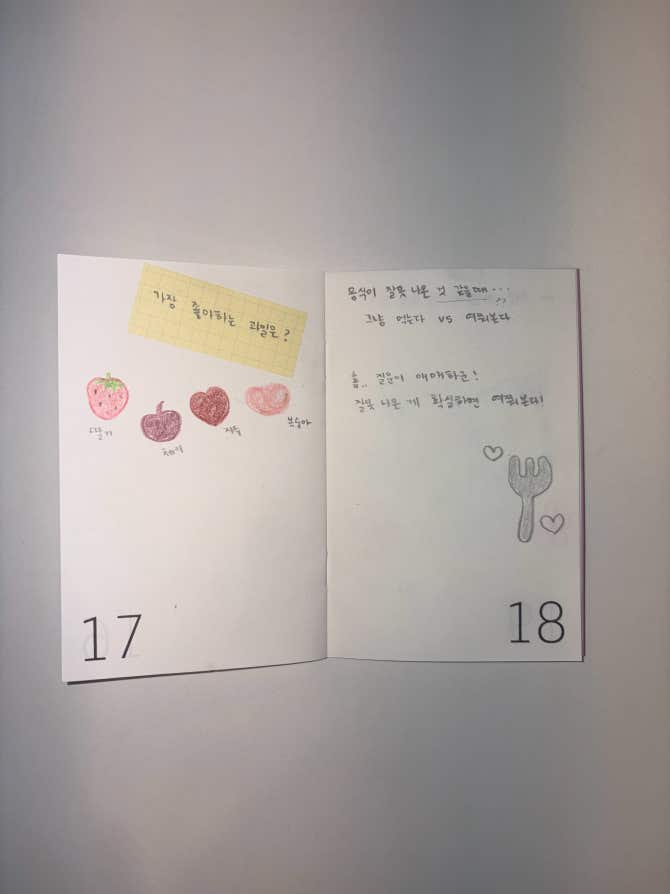 가장 좋아하는 과일은?
딸기
체리
자두
복숭아
17
음식이 잘못 나온 것 같을때...
그냥 먹는다 vs 여쭤본다
흠.. 질문이 애매하군!
잘못 나온 게 확실하면 여쭤본다!
18